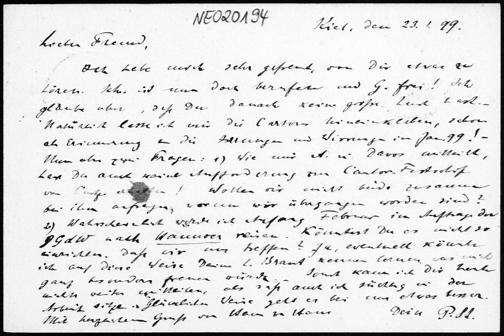 NEO20194
Kiel, den 23.1.99.
Lieber Freund,
Ich habe mich sehr gefreut, von Dir etwas zu
hören. ist nun doch berufen und G. frei! Ich
glaube aber, daß Du danach keine große Lust hast.
Natürlich lasse ich mir die Cartons, schon
als Erinnerung an die und Wirrungen im Jan. 99!
Nun aber zwei Fragen: 1) Wie mir A. in Davos mitteilt,
hast Du auch keine Aufforderung zur Cantor-Festschrift
von! Wollen wir nicht beide zusammen
bei ihm anfragen, warum wir übergangen worden sind?
2) Wahrscheinlich werde ich Anfang Februar im Auftrage der
nach Hannover reisen. Könntest Du es nicht so
einrichten, daß wir uns treffen? Ja, eventuell könnte
ich auf diese Weise Deine l. Braut kennen lernen, was mich
ganz besonders freuen würde. Sonst kann ich Dir heute
nicht weiter mitteilen, als daß auch ich tüchtig in der
Arbeit sitze. Glücklicher Weise geht es bei uns etwas besser.
Mit herzlichem Gruß von Haus zu Haus
Dein P. St.